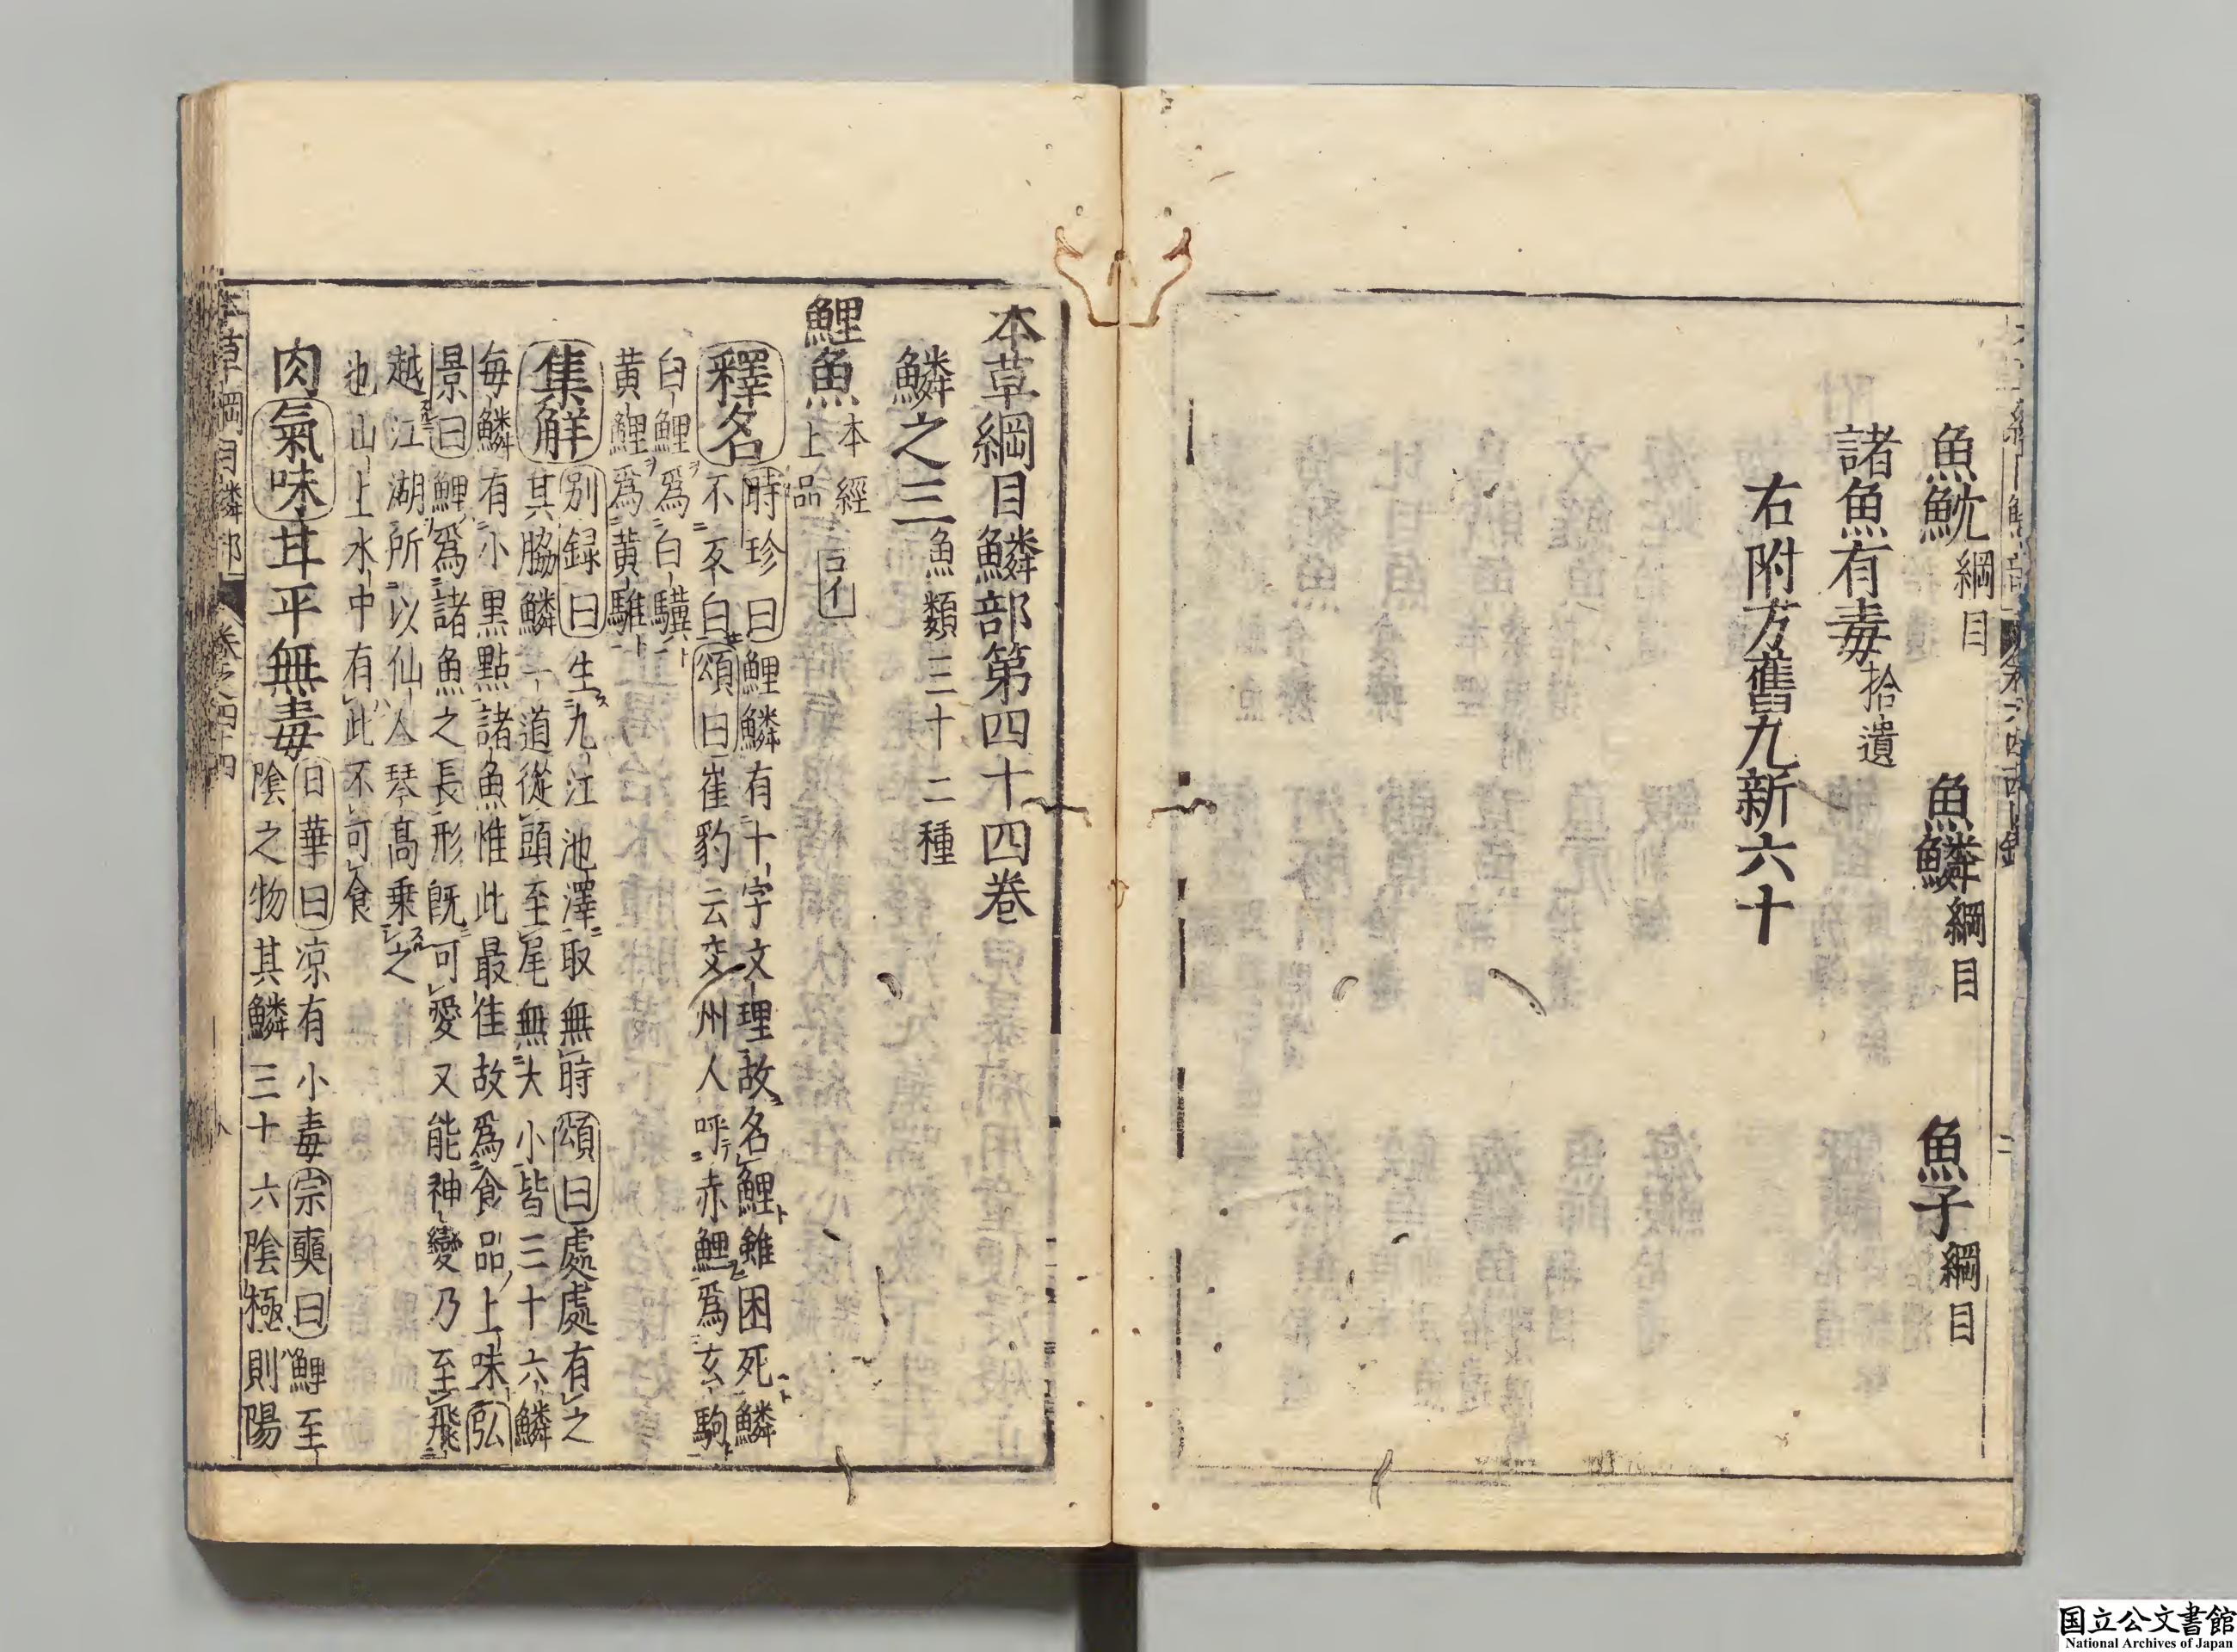 魚魫綱目 魚鱗綱目 魚子綱目
諸魚有毒拾遺
右附方舊九新六十
本草綱目鱗部第四十四卷
鱗之三魚類三十二種
鯉魚本經上品 コイ
釋名 時珍曰鯉鱗有十字文理故名鯉雖困死鱗
不反白頌曰崔豹云兗州人呼赤鯉爲玄駒
白鯉爲白驥
黄鯉爲黄騅
集解 別録曰生九江池澤取無時頌曰處處有之
其脇鱗一道從頭至尾無大小皆三十六鱗
毎鱗有小黒點諸魚惟此最佳故爲食品上味弘
景曰鯉爲諸魚之長形既可愛又能神變乃至飛
越江湖所以仙人琴髙乗之
也山上水中有此不可食
肉氣味甘平無毒 日華曰凉有小毒宗奭曰鯉至
陰之物其鱗三十六陰極則陽
本草綱目鱗部 卷之四十四
国立公文書館
National Archives of Japan